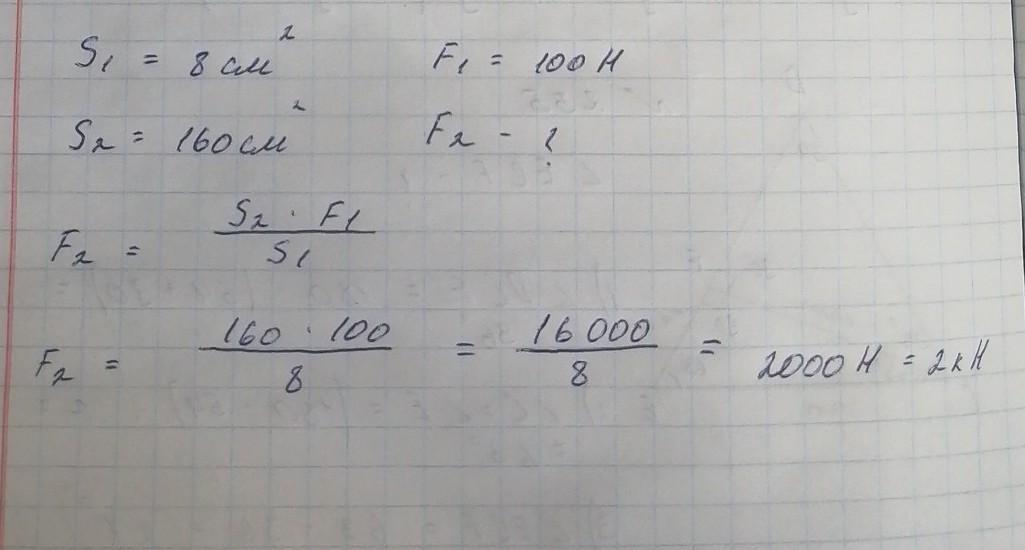 S₁ = 8 см² F₁ = 100 Н
S₂ = 160 см² F₂ - ?
F₂ = S₂ · F₁ / S₁
F₂ = 160 · 100 / 8 = 16 000 / 8 = 2000 Н = 2 кН